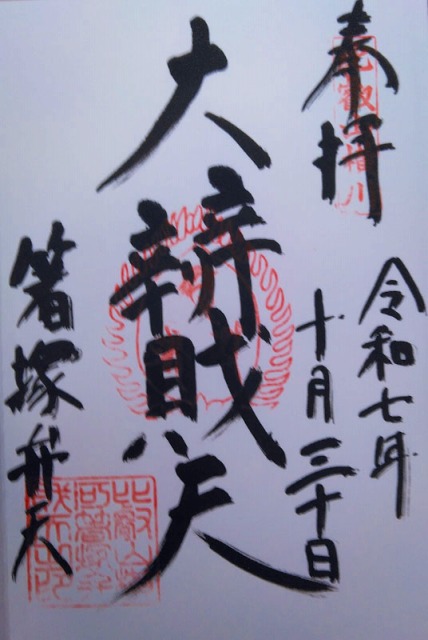 奉拝
令和七年
十月三十日
大辨財天
箸塚弁天